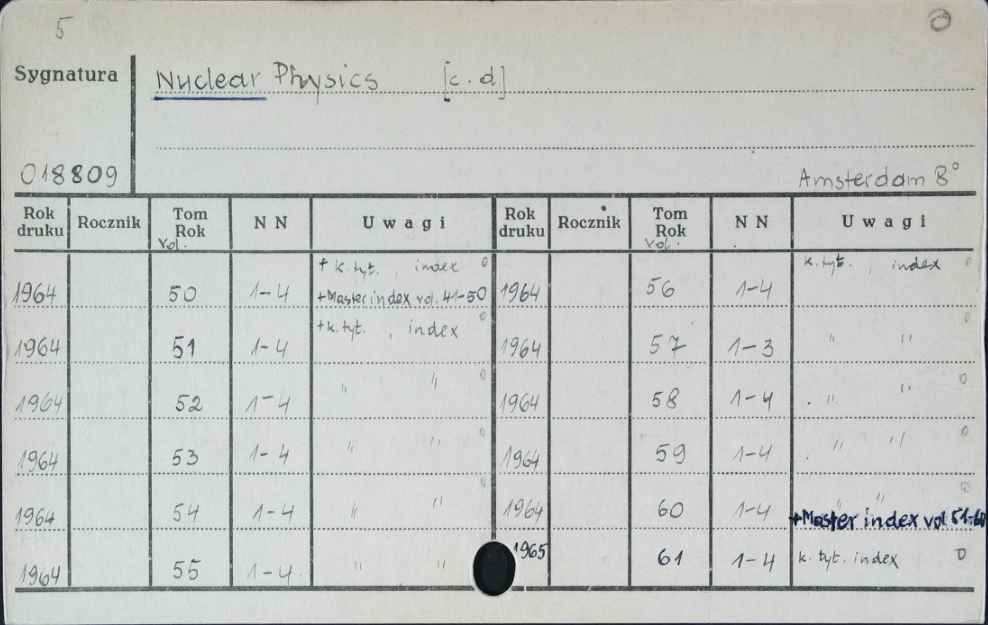 5 0
Sygnatura Nuclear Physics [c.d]
018809 Amsterdam 8°
Rok druku Rocznik Tom Rok Vol. N N Uwagi Rok druku Rocznik Tom Rok Vol. N N Uwagi
+ k. tyt. , index 0 k. tyt. , index 0
1964 50 1-4 +Master index vol. 41-50 1964 56 1-4
1964 51 1-4 +k. tyt. , index 0 1964 57 1-3 " " 0
1964 52 1-4 " " 0 1964 58 1-4 . " " 0
1964 53 1-4 " " 0 1964 59 1-4 . " " 0
1964 54 1-4 " " 0 1964 60 1-4 " " 0
+Master index vol 51-60
1964 55 1-4. " " 1965 61 1-4 k. tyt. index 0